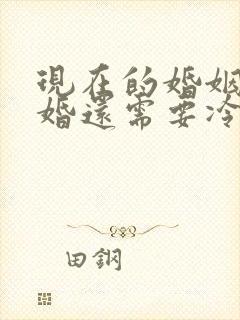 現在的婚姻
婚還需要冷
田鋼